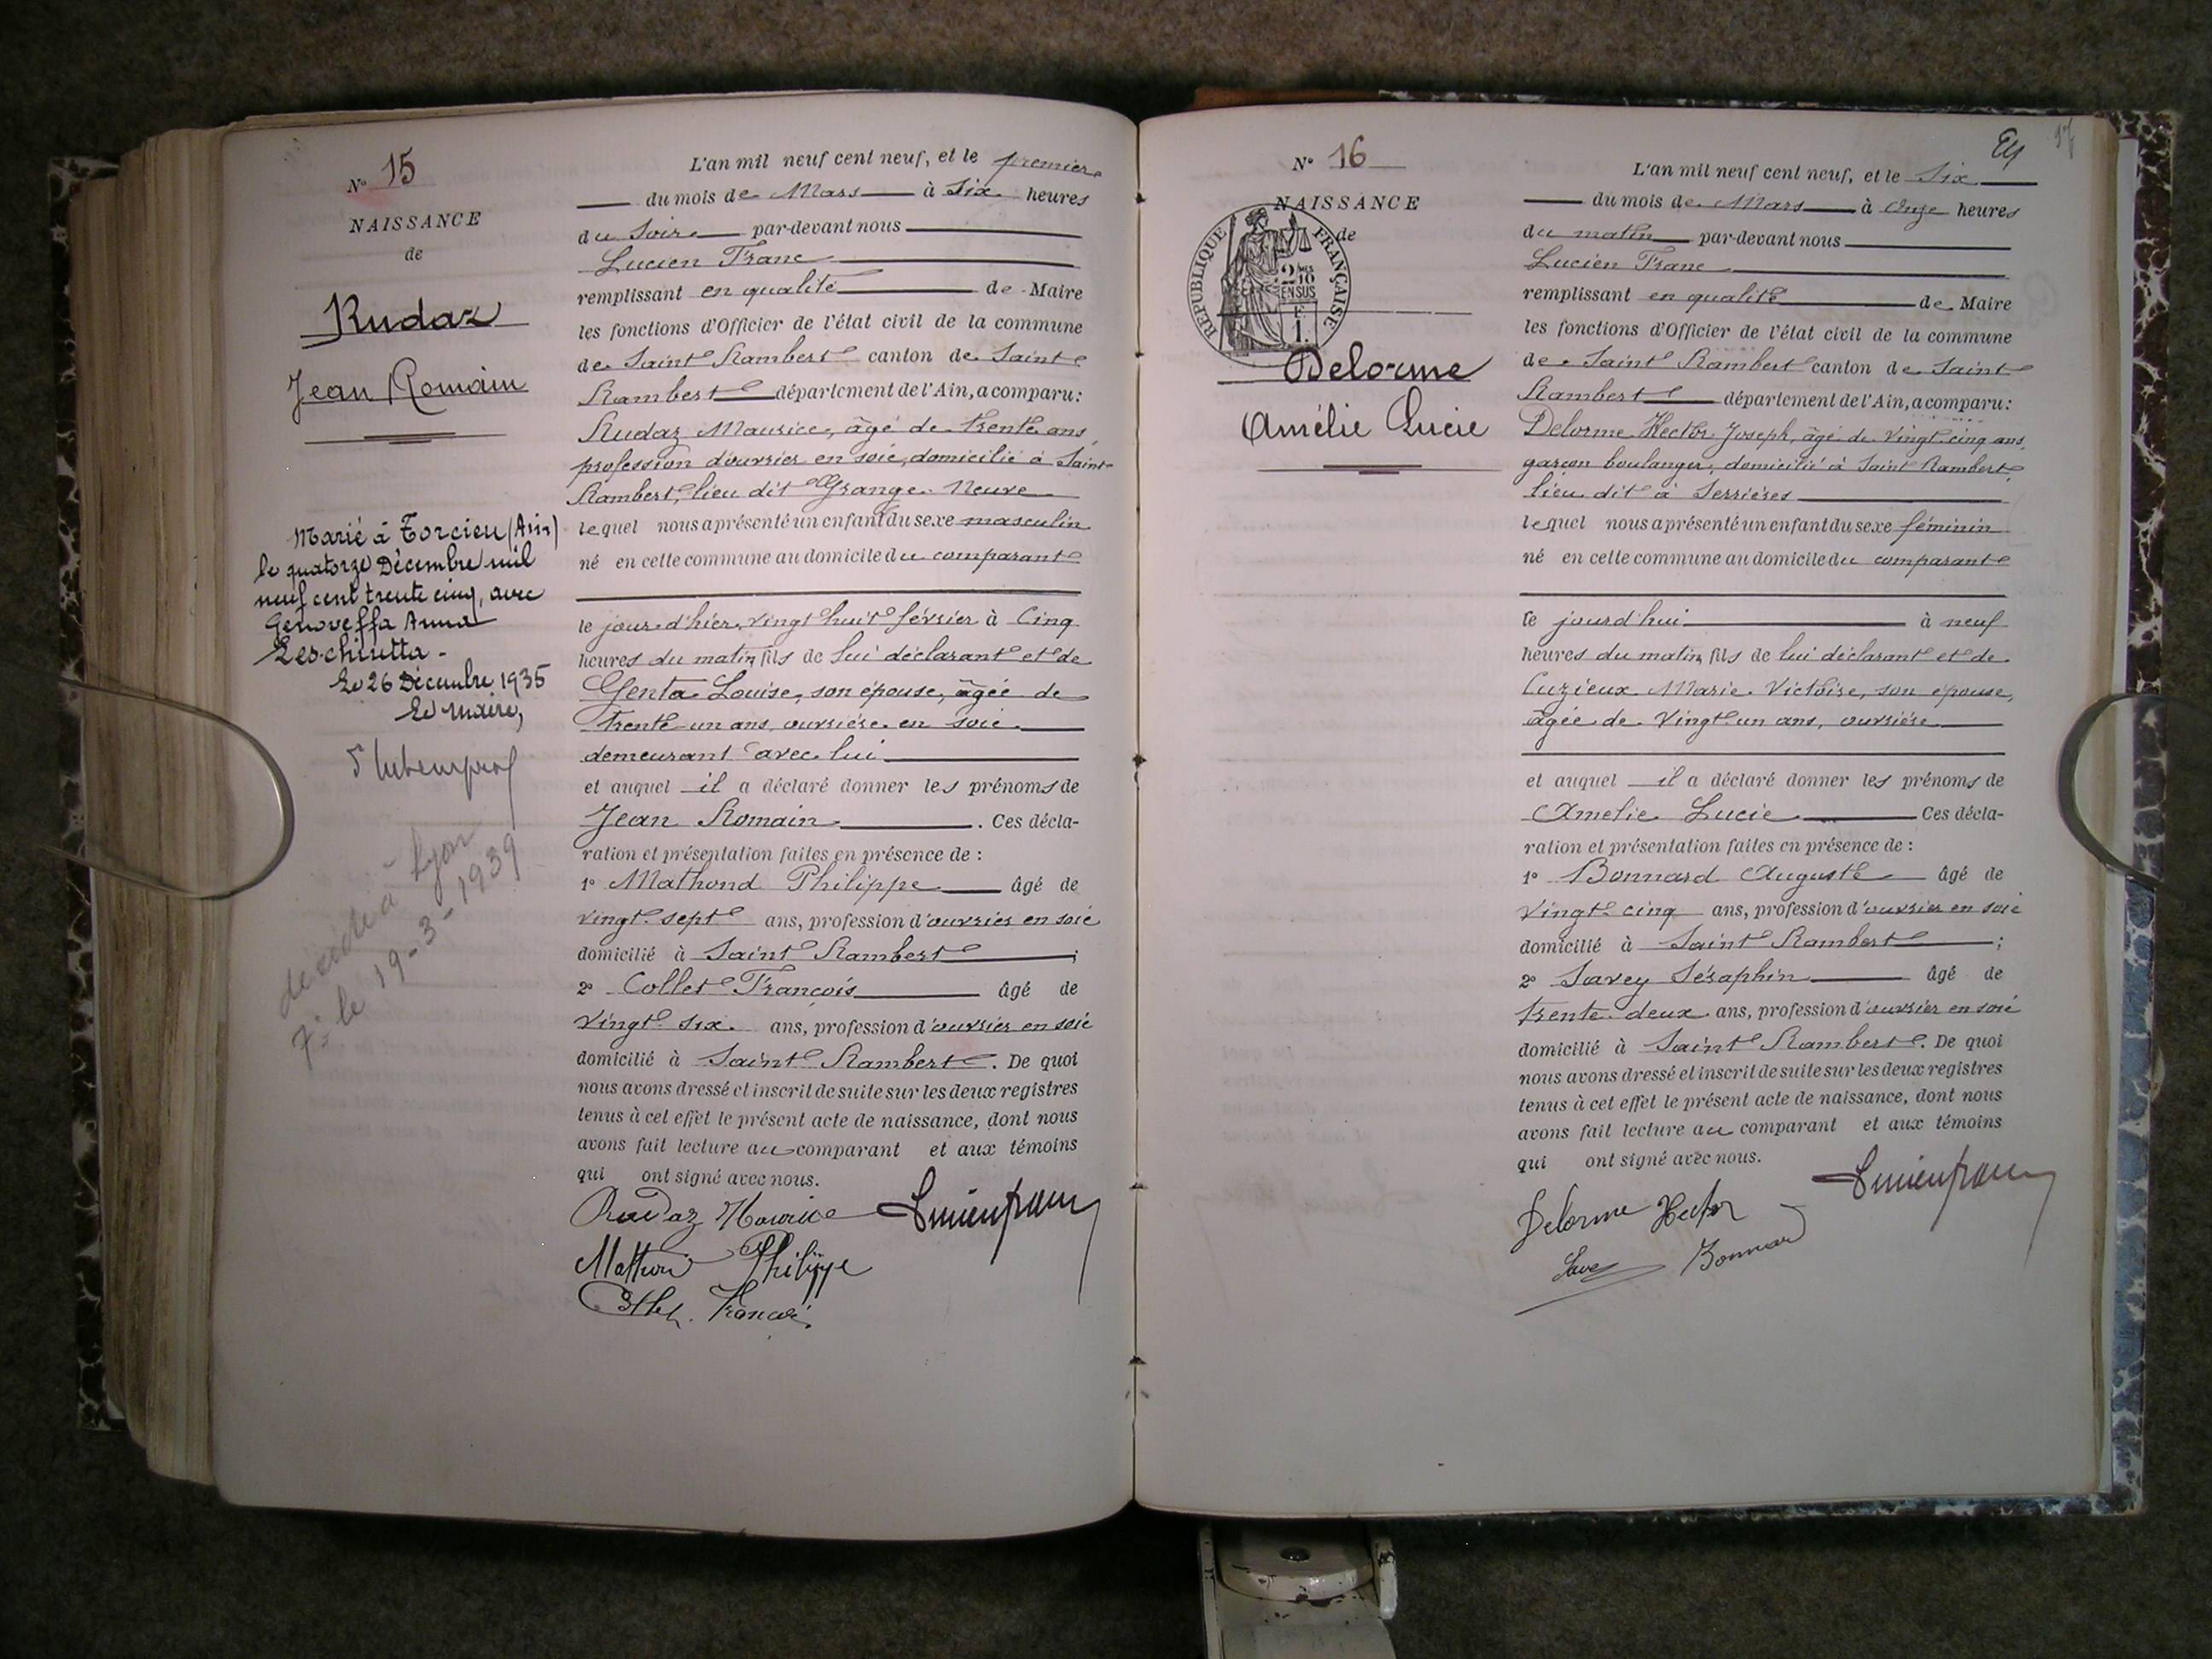 N° 15
NAISSANCE
de
Rudaz
Jean Romain
Marié à Torcieu (Ain)
le quatorze Décembre mil
neuf cent trente cinq, avec
Genoveffa Anna
Leschiutta -
Le 26 Décembre 1935
Le Maire,
décédé à Lyon
7e le 19-3-1939
L'an mil neuf cent neuf, et le premier
du mois de Mars à Six heures
du Soir par-devant nous
Lucien Franc
remplissant en qualité de Maire
les fonctions d'Officier de l'état civil de la commune
de Saint Rambert canton de Saint
Rambert département de l'Ain, a comparu:
Rudaz Maurice, âgé de trente ans,
profession d'ouvrier en soie, domicilié à Saint
Rambert, lieu dit Grange Neuve
lequel nous a présenté un enfant du sexe masculin
né en cette commune au domicile du comparant
le jour d'hier, vingt huit février à Cinq
heures du matin, fils de lui déclarant et de
Genta Louise, son épouse, âgée de
trente un ans, ouvrière en soie
demeurant avec lui
et auquel il a déclaré donner les prénoms de
Jean Romain. Ces décla-
ration et présentation faites en présence de :
1° Mathond Philippe âgé de
vingt sept ans, profession d'ouvrier en soie
domicilié à Saint Rambert ;
2° Collet François âgé de
vingt six ans, profession d'ouvrier en soie
domicilié à Saint Rambert. De quoi
nous avons dressé et inscrit de suite sur les deux registres
tenus à cet effet le présent acte de naissance, dont nous
avons fait lecture au comparant et aux témoins
qui ont signé avec nous.
Rudaz Maurice Lucien Franc
Philippe
Collet François
N° 16
NAISSANCE
de
REPUBLIQUE FRANÇAISE
2/10 EN SUS
F.
1.
Delorme
Amélie Lucie
L'an mil neuf cent neuf, et le Six
du mois de Mars à Onze heures
du matin par-devant nous
Lucien Franc
remplissant en qualité de Maire
les fonctions d'Officier de l'état civil de la commune
de Saint Rambert canton de Saint
Rambert département de l'Ain, a comparu:
Delorme Hector Joseph, âgé de vingt cinq ans,
garçon boulanger, domicilié à Saint Rambert,
lieu dit à Serrières
lequel nous a présenté un enfant du sexe féminin
né en cette commune au domicile du comparant
le jourd'hui à neuf
heures du matin, fils de lui déclarant et de
Cuzieux Marie Victoire, son épouse,
âgée de vingt un ans, ouvrière
et auquel il a déclaré donner les prénoms de
Amelie Lucie Ces décla-
ration et présentation faites en présence de :
1° Bonnard Auguste âgé de
vingt cinq ans, profession d'ouvrier en soie
domicilié à Saint Rambert ;
2° Savey Séraphin âgé de
trente deux ans, profession d'ouvrier en soie
domicilié à Saint Rambert. De quoi
nous avons dressé et inscrit de suite sur les deux registres
tenus à cet effet le présent acte de naissance, dont nous
avons fait lecture au comparant et aux témoins
qui ont signé avec nous.
Lucien Franc
Delorme Hector
Savey Bonnard